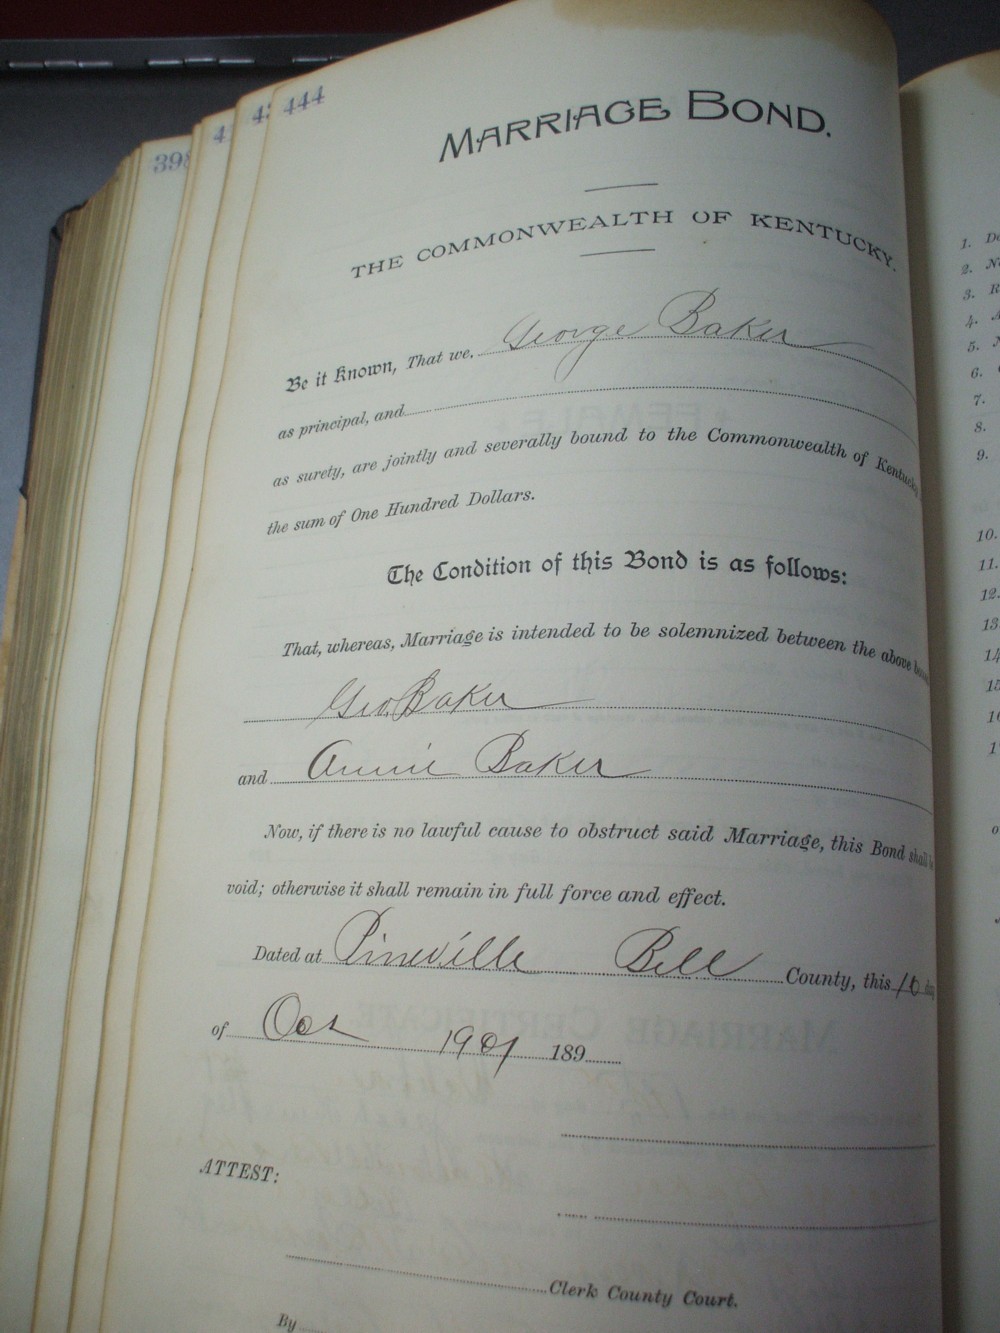 444
43
41
398
MARRIAGE BOND.
THE COMMONWEALTH OF KENTUCKY.
Be it Known, That we, George Baker
as principal, and
as surety, are jointly and severally bound to the Commonwealth of Kentucky
the sum of One Hundred Dollars.
The Condition of this Bond is as follows:
That, whereas, Marriage is intended to be solemnized between the above
Geo. Baker
and Annie Baker
Now, if there is no lawful cause to obstruct said Marriage, this Bond shall
void; otherwise it shall remain in full force and effect.
Dated at Pineville Bell County, this 16 day
of Oct 1901 189
ATTEST:
Clerk County Court.
By
1.
2.
3.
4.
5.
6.
7.
8.
9.
10.
11.
12.
13.
14
15
16
17